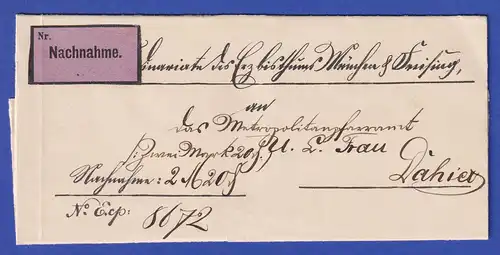 Nr.
Nachnahme.
dinariate des Erzbisthums München & Freising,
an
das Metropolitanpfarramt
/: Zwei Mark 20 ₰ U. L. Frau
Nachnahme: 2 M 20 ₰
Dahier
No Exp: 8672